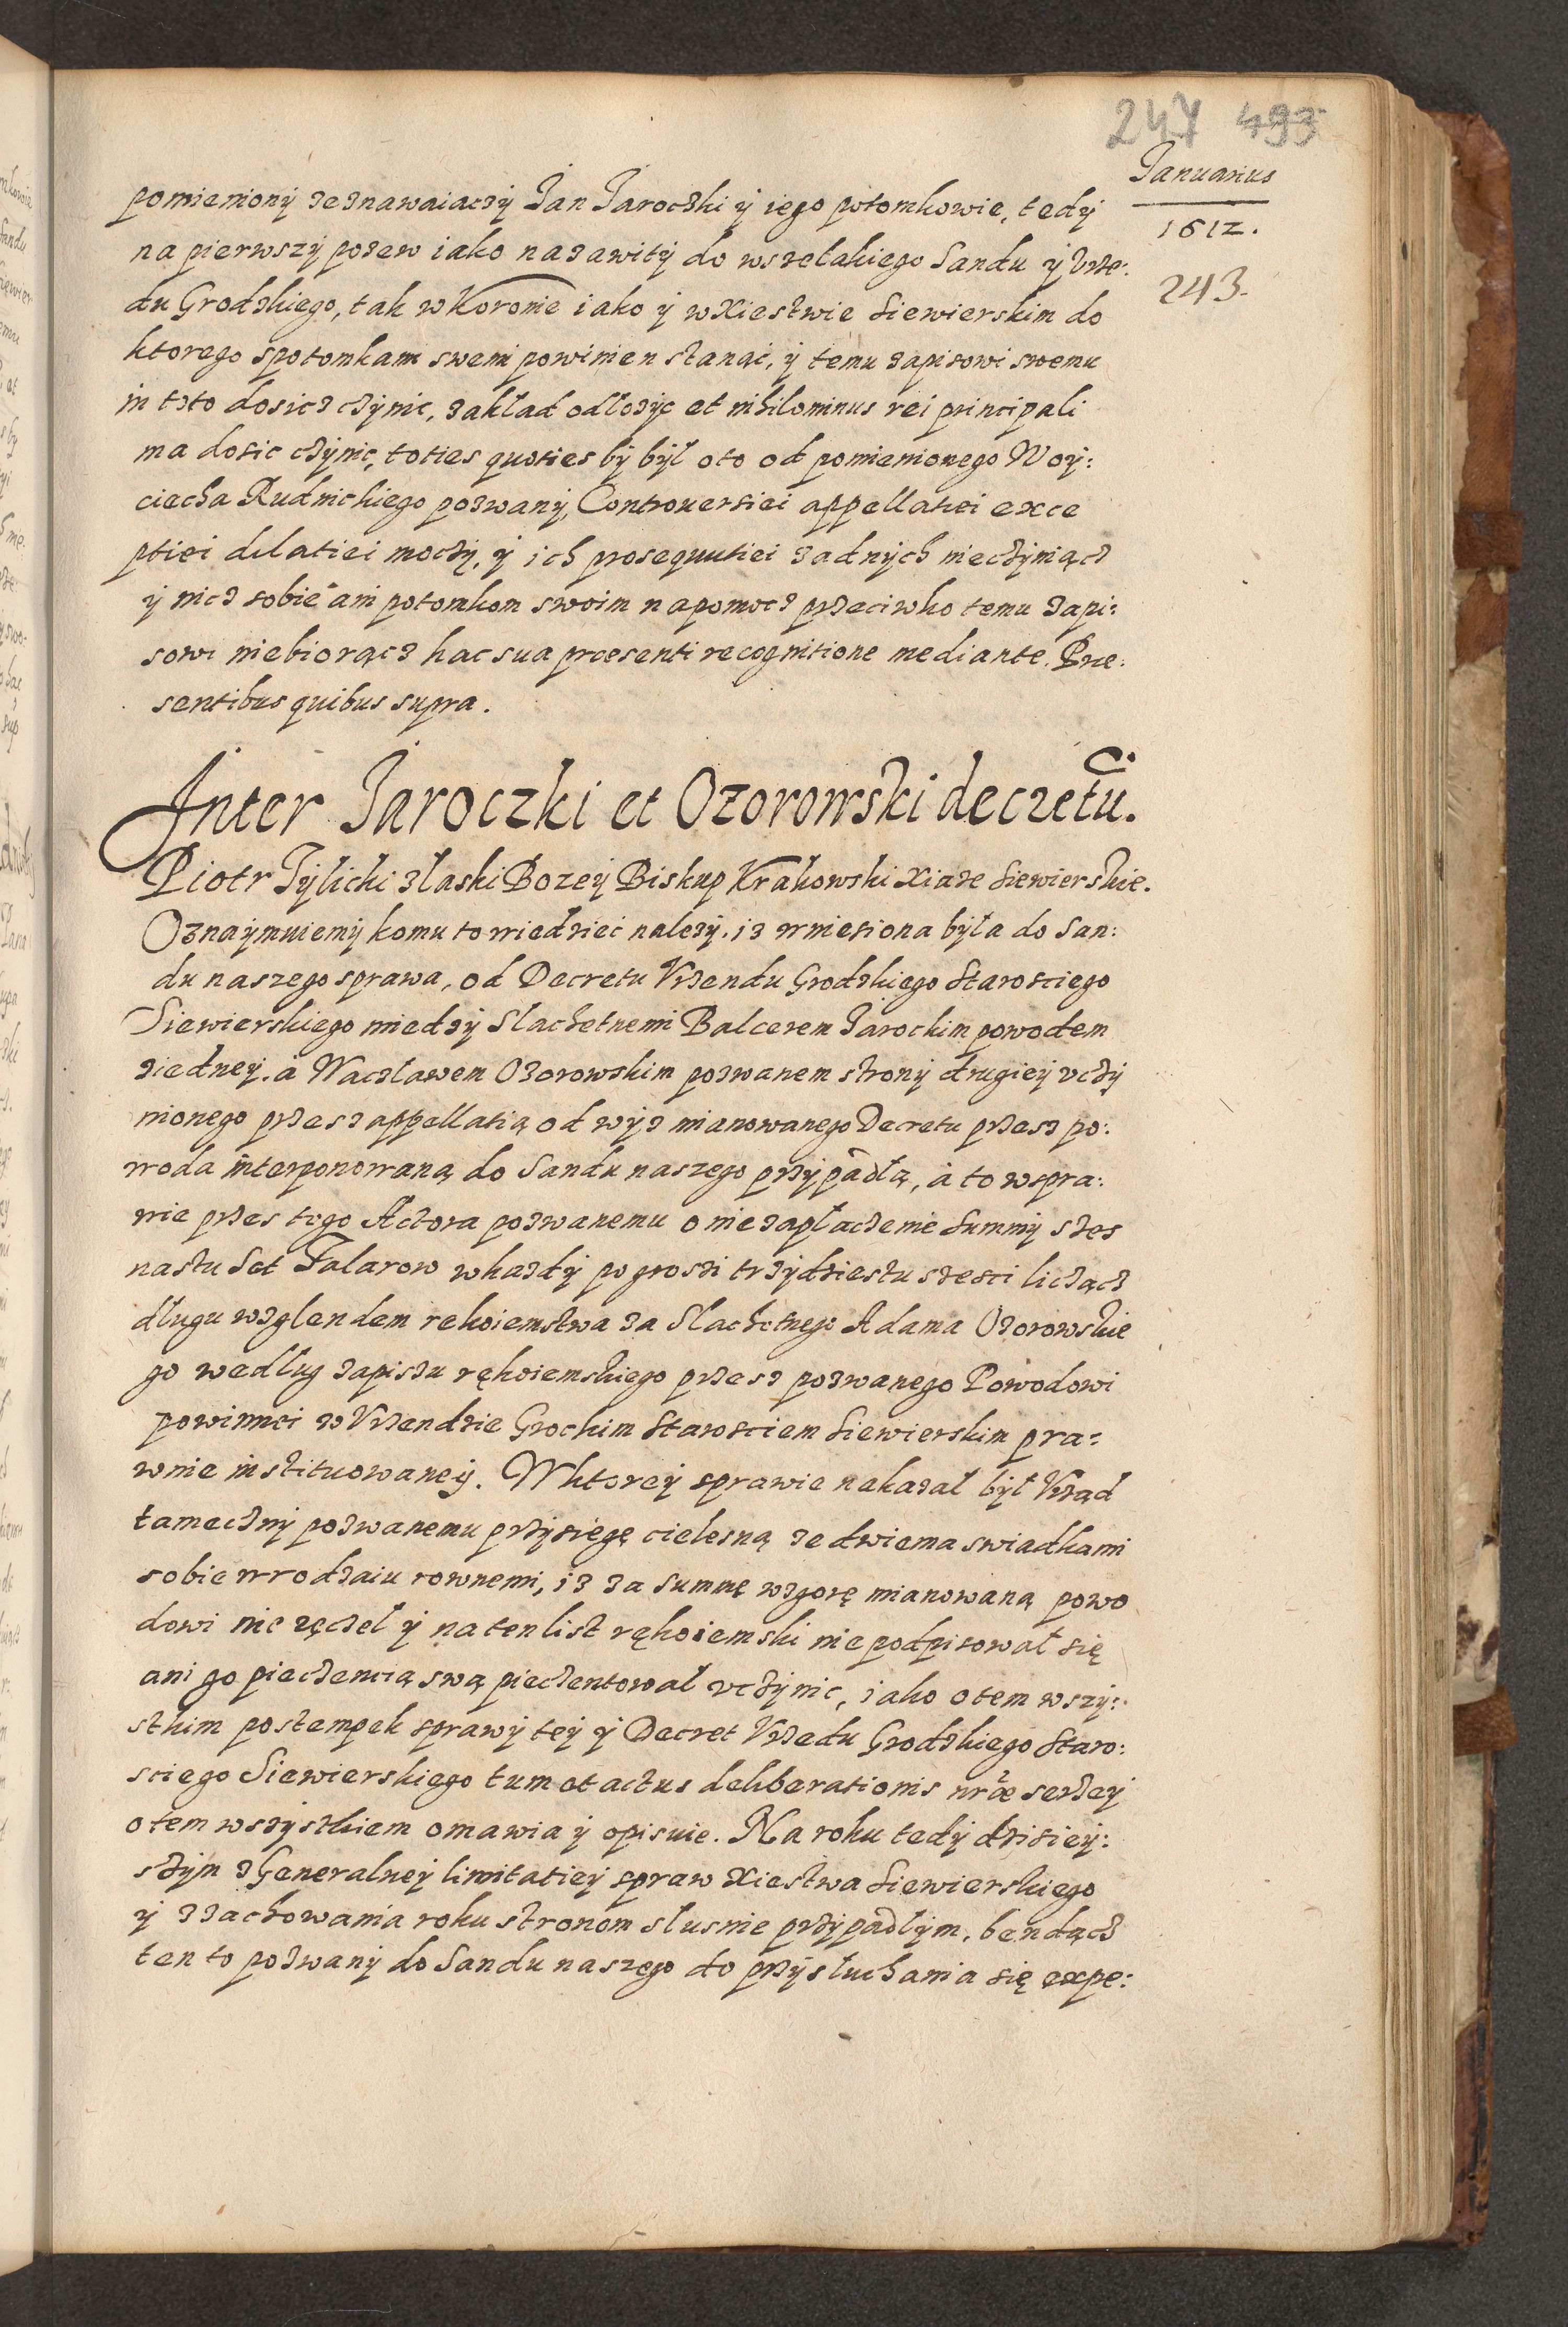 247 493
Januarius
1612.
243.
pomieniony zeznawaiaczÿ Jan Jaroczki ÿ iego potomkowie, tedÿ
na pierwszÿ pozew iako nazawitÿ do wszelakiego Sandu ÿ Vrze:
du Grodzkiego, tak w Koronie iako ÿ w Xiestwie Siewierskim do
ktorego spotomkami swemi powinien stanąć, ÿ temu zapisowi swemu
in toto dosicz czÿnic, zakład odłozÿc et nihilominus rei principali
ma dosic czÿnic, toties quoties bÿ bÿl oto od pomienionego Woÿ:
ciecha Rudnickiego pozwanÿ, Controuersiei appellatiei exce
ptiei dilatiei moczÿ, ÿ ich prosequutiei zadnÿch nieczÿniącz
ÿ nicz sobie ani potomkom swoim napomocz przeciwko temu zapi:
sowi niebiorącz hac sua præsenti recognitione mediante. Præ:
sentibus quibus supra.
Inter Jaroczki et Ozorowski decretũ.
Piotr Tÿlicki złaski Bozeÿ Biskup Krakowski Xiaze Siewierskie.
Oznaÿmuiemÿ komu to wiedziec nalezÿ. iz wniesiona bÿła do San:
du naszego sprawa, od Decretu Vrzendu Grodzkiego Starosciego
Siewierskiego miedzÿ Slachetnemi Balcerem Jarockim powodem
ziedneÿ. à Waczlawem Ozorowskim pozwanem stronÿ drugieÿ vczÿ
nionego przesz appellatią od wÿz mianowanego Decretu przesz po:
woda interponowaną do Sandu naszego przÿpadłą, à to wspra:
wie przes tego Actora pozwanemu o niezapłaczenie Summÿ szes
nastu Set Talarow wkazdÿ po groszi trzÿdziestu szesci liczącz
długu wzglendem rekoiemstwa za Slachetnego Adama Ozorowskie
go według zapiszu rękoiemskiego przesz pozwanego Powodowi
powinnei w Vrzendzie Grockim Starosciem Siewierskim pra:
wnie instituowaneÿ. Wktoreÿ sprawie nakazał bÿł Vrząd
tamecznÿ pozwanemu przÿsiegę cielesną ze dwiema swiadkami
sobie wrodzaiu rownemi, iz za summę wzgorę mianowaną powo
dowi nie ręczeł ÿ na ten list rękoiemski nie podpisował się
ani go pieczencią swą pieczentował vczÿnic, iako otem wszÿ:
stkim postempek sprawÿ teÿ ÿ Decret Vrzedu Grodzkiego Staro:
sciego Siewierskiego tum et actus deliberationis nræ serzeÿ
otem wszÿstkiem omawia ÿ opisuie. Na roku tedÿ dzisieÿ:
szÿm z Generalneÿ limitatieÿ spraw Xiestwa Siewierskiego
ÿ zzachowania roku stronom slusnie przÿpadłÿm, bendącz
ten to pozwanÿ do Sandu naszego do przÿsłuchania się expe: